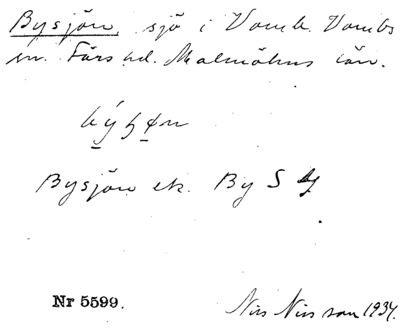 Bysjön, sjö i Vomb. Vombs
sn. Färs hd. Malmöhus län.
Bysjön ek. By S
Nr 5599.
Nils Nilsson 1934.